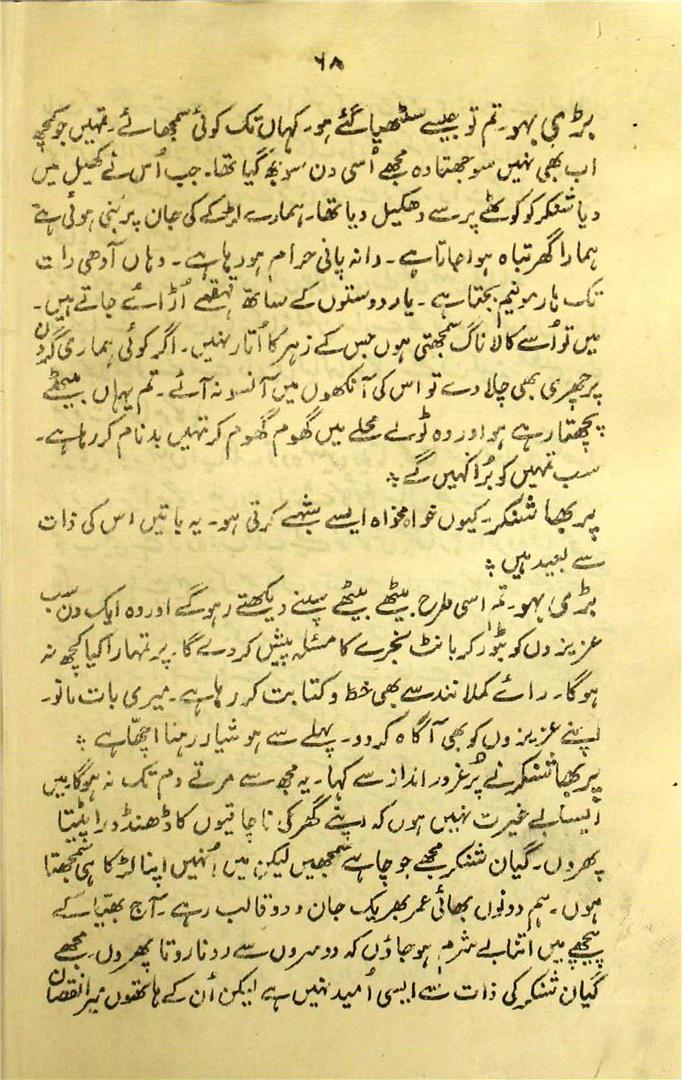 ۶۸
بڑی بہو۔ تم تو جیسے سٹھیا گئے ہو۔ کہاں تک کوئی سمجھائے۔ تمہیں جو کچھ
اب بھی نہیں سوجھتا وہ مجھے اُسی دن سوجھ گیا تھا۔ جب اُس نے کھیل میں
دیا شنکر کو کوٹھے پر سے دھکیل دیا تھا۔ ہمارے لڑکے کی جان پر بنی ہوئی ہے
ہمارا گھر تباہ ہوا جاتا ہے۔ دانہ پانی حرام ہو رہا ہے۔ وہاں آدھی رات
تک ہارمونیم بجتا ہے۔ یار دوستوں کے ساتھ قہقہے اُڑائے جاتے ہیں۔
میں تو اُسے کالا ناگ سمجھتی ہوں جس کے زہر کا اُتار نہیں۔ اگر کوئی ہماری گردن
پر چھری بھی چلا دے تو اس کی آنکھوں میں آنسو نہ آئے۔ تم یہاں بیٹھے
پچھتا رہے ہو اور وہ ٹولے محلے میں گھوم گھوم کر تمہیں بدنام کر رہا ہے۔
سب تمہیں کو بُرا کہیں گے ؞
پربھا شنکر۔ کیوں خواہ مخواہ ایسے شبہے کرتی ہو۔ یہ باتیں اس کی ذات
سے بعید ہیں ؞
بڑی بہو۔ تم اسی طرح بیٹھے بیٹھے سپنے دیکھتے رہو گے اور وہ ایک دن سب
عزیزوں کو بٹور کر بانٹ بخرے کا مسئلہ پیش کر دے گا۔ پر تمہارا کیا کچھ نہ
ہوگا۔ رائے کملا نند سے بھی خط و کتابت کر رہا ہے۔ میری بات مانو۔
اپنے عزیزوں کو بھی آگاہ کر دو۔ پہلے سے ہوشیار رہنا اچھا ہے ؞
پربھا شنکر نے پُرغرور انداز سے کہا۔ یہ مجھ سے مرتے دم تک نہ ہوگا۔ میں
ایسا بے غیرت نہیں ہوں کہ اپنے گھر کی ناچاقیوں کا ڈھنڈورا پٹیتا
پھروں۔ گیان شنکر مجھے جو چاہے سمجھیں لیکن میں اُنہیں اپنا لڑکا ہی سمجھتا
ہوں۔ ہم دونوں بھائی عمر بھر یک جان و دو قالب رہے۔ آج بھیا کے
پیچھے میں اتنا بے شرم ہو جاؤں کہ دوسروں سے رونا روتا پھروں۔ مجھے
گیان شنکر کی ذات سے ایسی اُمید نہیں ہے لیکن اُن کے ہاتھوں میرا نقصان